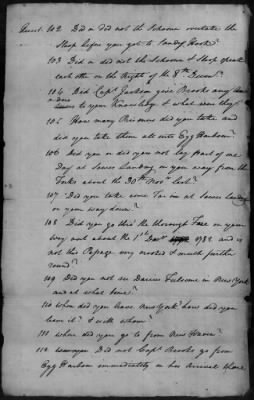 Quest. 102 Did or did not the Schooner overtake the
Sloop before you got to Sandy Hook?
103 Did or did not the Schooner & Sloop speak
each other on the Night of the 8th Decem?
104 Did Capt Jackson give Brooks any
to your Knowledge & what were they?
105 How many Prisoners did you take and
did you take them all into Egg Harbour?
106 Did you or did you not lay part of one
Day at Sweet Landing on your way from the
Forks about the 30th Novr last?
107 Did you take some Tar in at Sweet Landing
on your way down?
108 Did you go thro' the thorough Fare on your
way out about the 1st Decr 1782 and is
not this Passage very crooked & much further
round?
109 Did you not see Darius Fulsome in New York
and at what time?
110 When did you leave New York? how did you
leave it? & with whom?
111 where did you go to from New Haven?
112 Did not Capt Brooks go from
Egg Harbour immediately on her arrival there